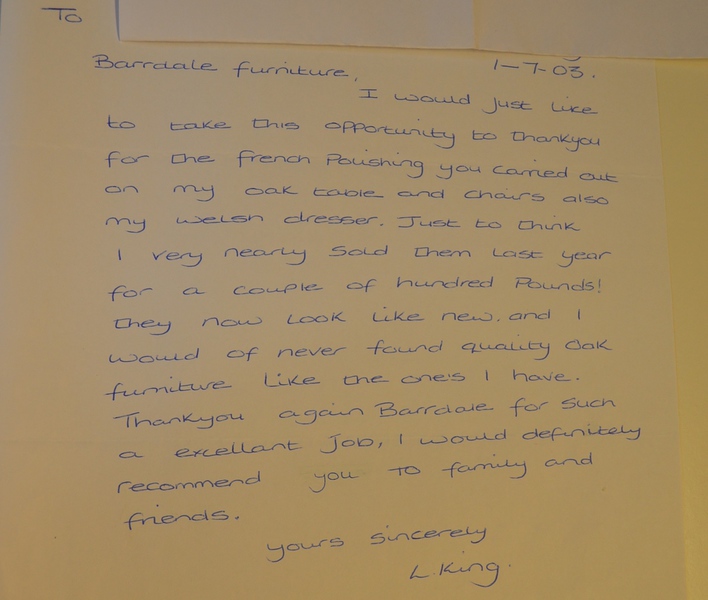 To
Barrdale furniture, 1-7-03.
I would just like
to take this opportunity to thankyou
for the french Polishing you carried out
on my oak table and chairs also
my welsh dresser. Just to think
I very nearly sold them last year
for a couple of hundred Pounds!
they now look like new. and I
would of never found quality Oak
furniture like the one's I have.
Thankyou again Barrdale for such
a excellant job, I would definitely
recommend you to family and
friends.
yours sincerely
L.King.